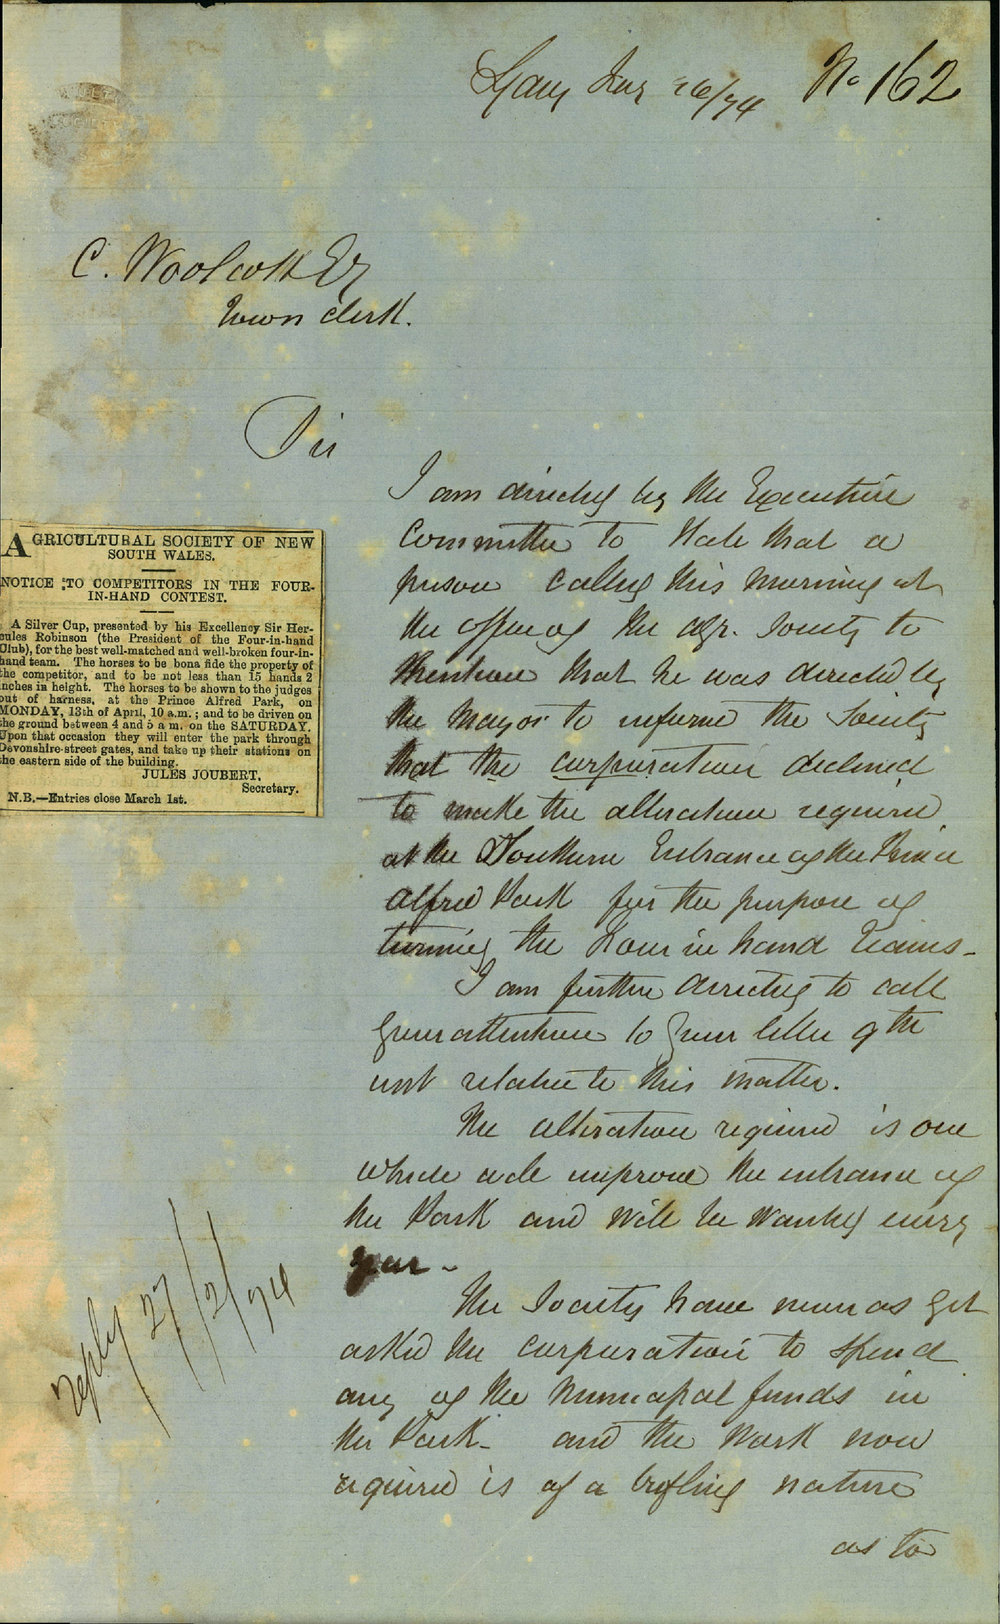 26/74 No 162
C. Woolcott Esq
Town Clerk.
Sir
I am directed by the Executive
Committee to State that a
person called this morning at
the office of the Agr. Society to
Mention that he was directed by
the Mayor to inform the Society
that the corporation declined
to make the alteration required
at the Southern Entrance of the Prince
Alfred Park for the purpose of
turning the Four in hand Teams-
I am further directed to call
your attention to your letter 9th
inst relative to this matter.
The alteration required is one
which will improve the entrance of
the Park and will be wanted every
year -
The Society have never as yet
asked the corporation to spend
any of the Municipal funds in
the Park- and the work now
required is of a trifling nature
as to
AGRICULTURAL SOCIETY OF NEW
SOUTH WALES.
NOTICE TO COMPETITORS IN THE FOUR-
IN-HAND CONTEST.
A Silver Cup, presented by his Excellency Sir Her-
cules Robinson (the President of the Four-in-hand
Club), for the best well-matched and well-broken four-in-
hand team. The horses to be bona fide the property of
the competitor, and to be not less than 15 hands 2
inches in height. The horses to be shown to the judges
out of harness, at the Prince Alfred Park, on
MONDAY, 13th of April, 10 a.m.; and to be driven on
the ground between 4 and 5 a m. on the SATURDAY.
Upon that occasion they will enter the park through
Devonshire-street gates, and take up their stations on
the eastern side of the building.
JULES JOUBERT,
Secretary.
N.B.—Entries close March 1st.
reply 27/2/74